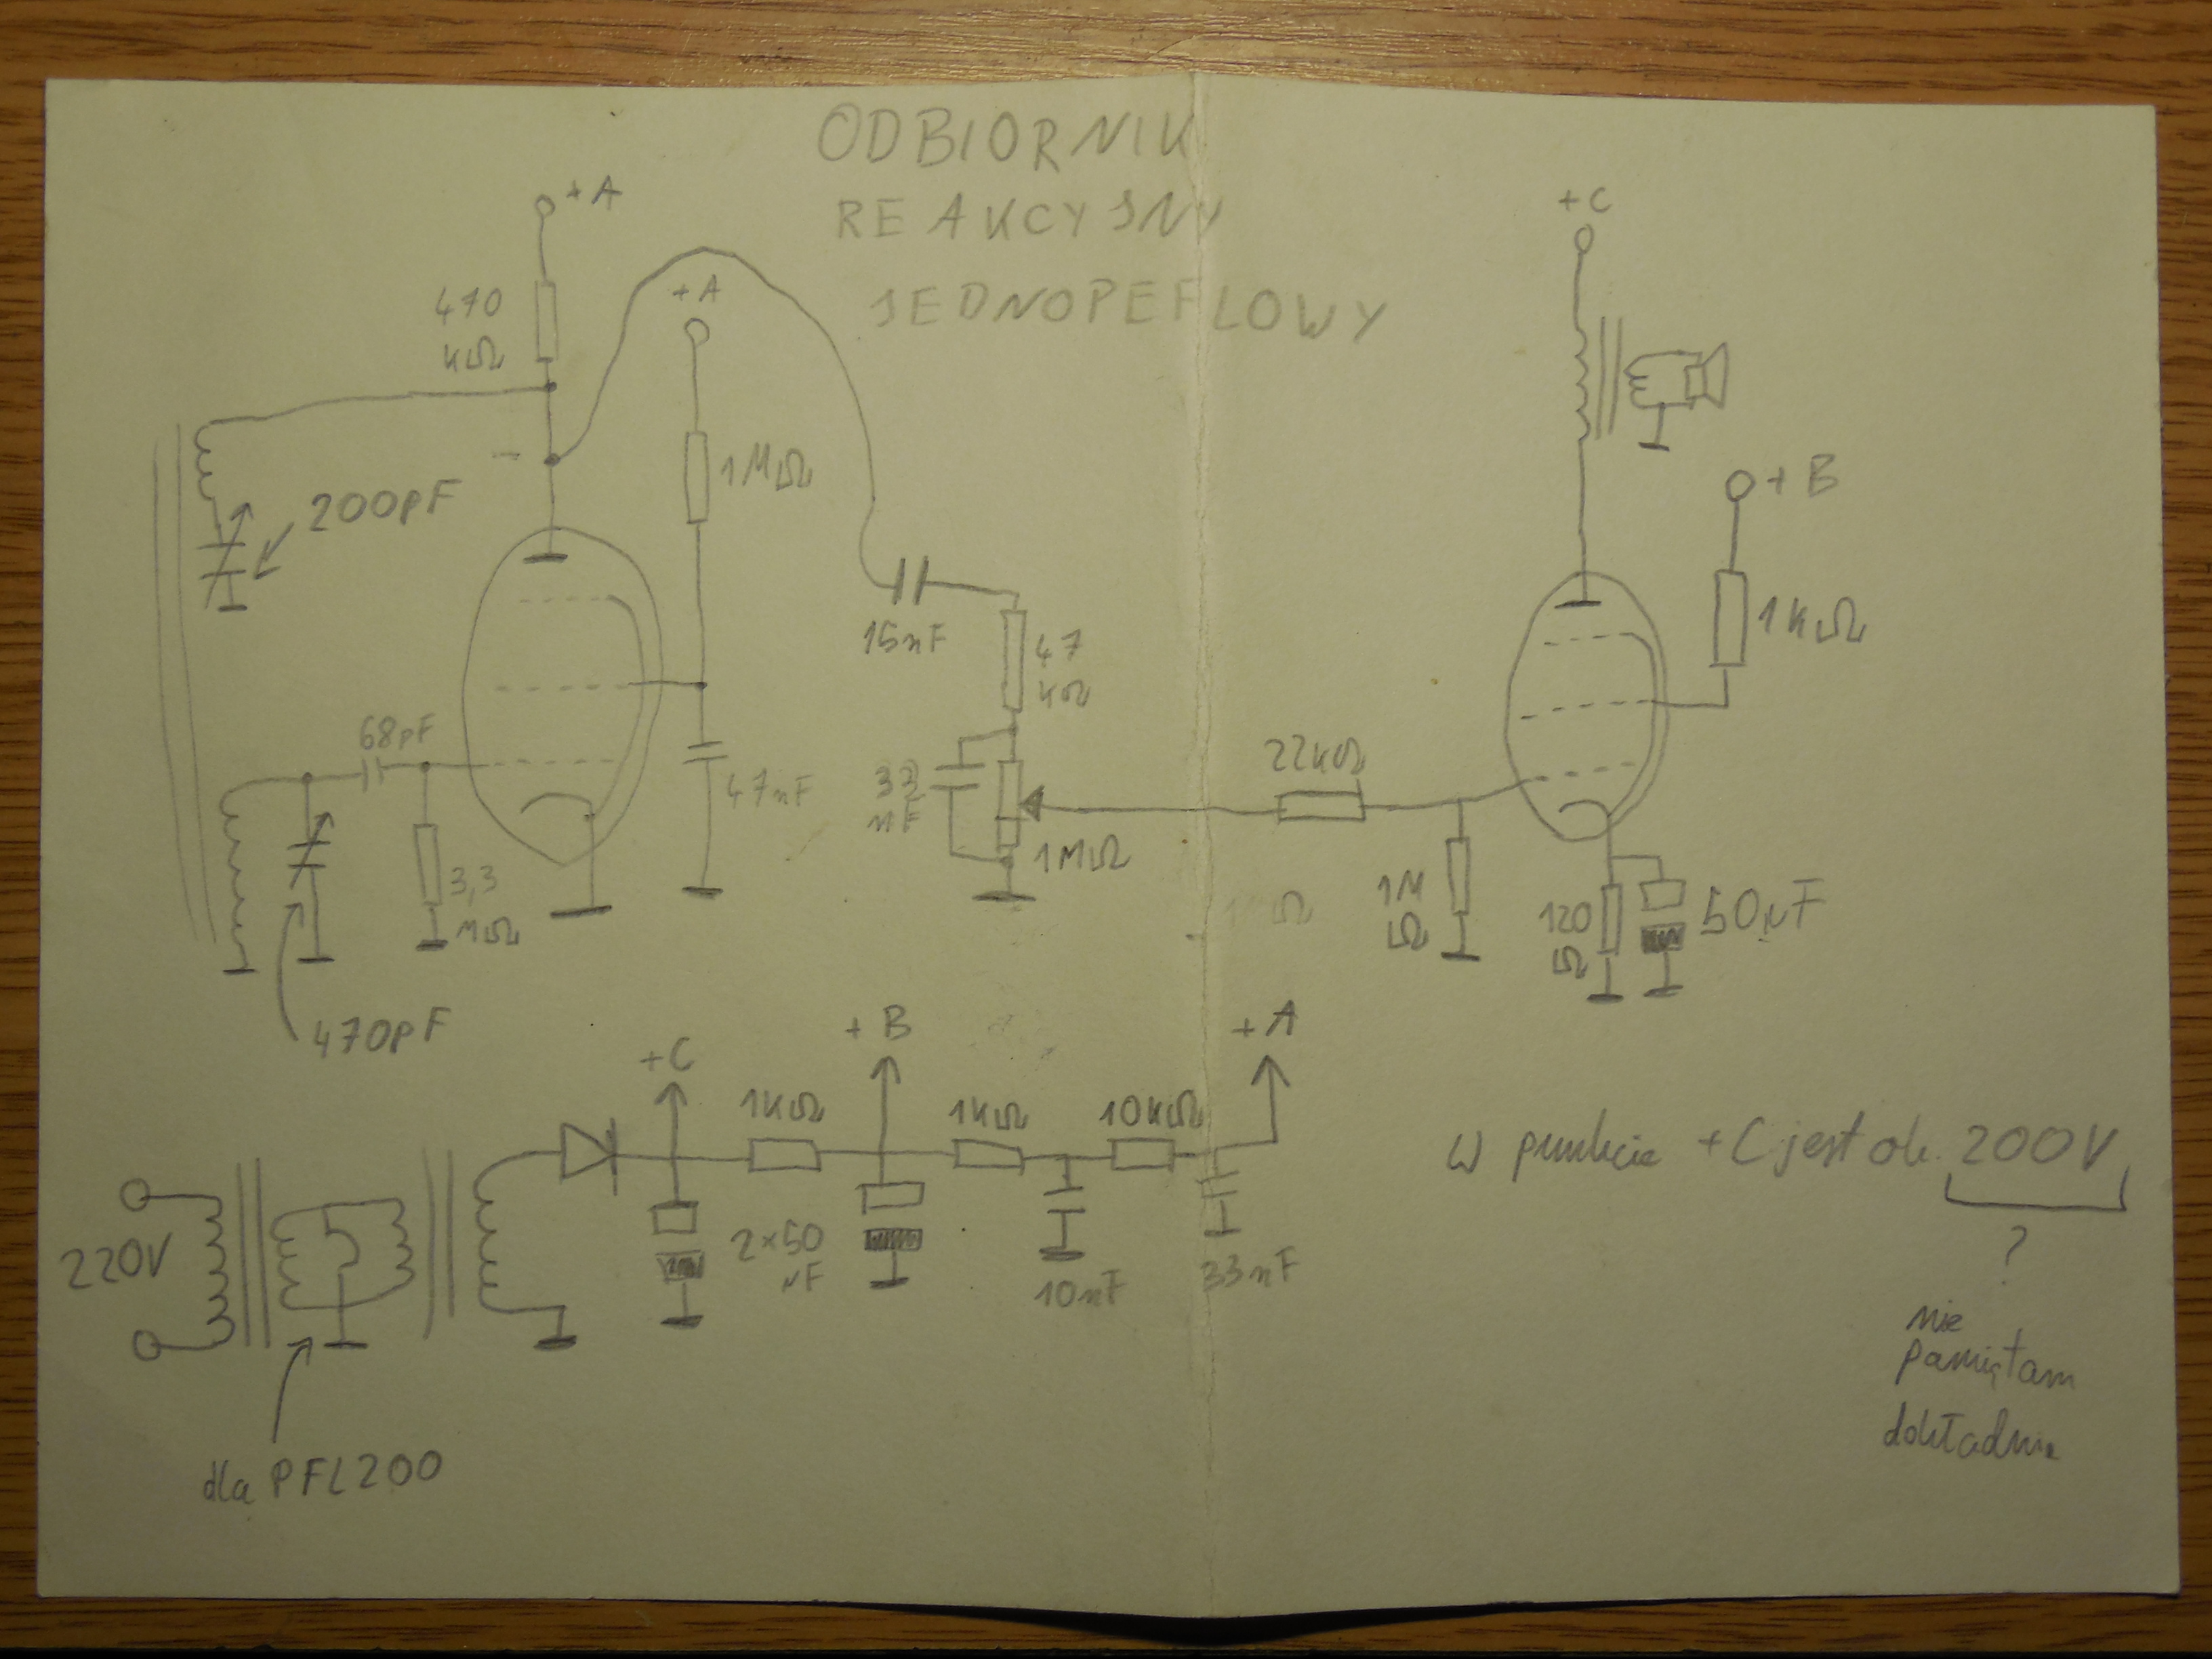 ODBIORNIK
REAKCYJNY
JEDNOPEFLOWY
+A
470
kΩ
+A
1MΩ
200pF
68pF
3,3
MΩ
47nF
470pF
15nF
47
kΩ
33
nF
1MΩ
22kΩ
1M
Ω
+C
+B
1kΩ
120
Ω
50µF
+C
+B
+A
1kΩ
1kΩ
10kΩ
220V
2×50
µF
10nF
33nF
dla PFL200
w punkcie +C jest ok. 200V
?
nie
pamiętam
dokładnie